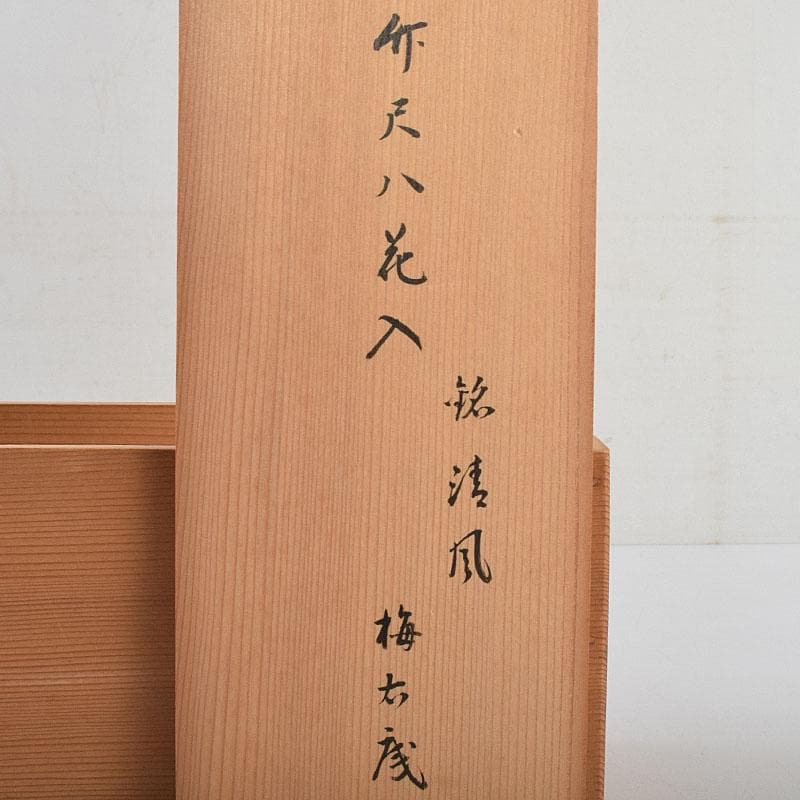 竹尺八花入
銘 清風
梅右